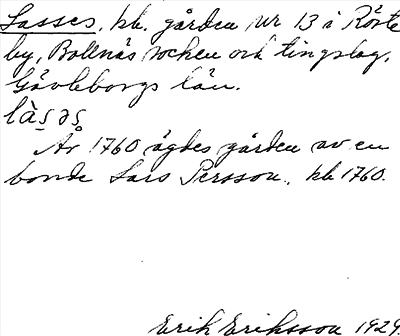 Lasses, kb. gården Nr 13 i Röste
by, Bollnäs socken och tingslag,
Gävleborgs län.
làs̥əs̥
År 1760 ägdes gården av en
bonde Lars Persson, kb 1760.
Erik Eriksson 1929.